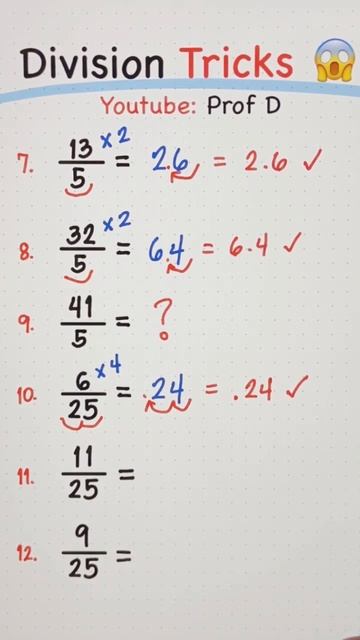 Division Tricks 😱
Youtube: Prof D
7. 13/5 x2 = 2.6 = 2.6 ✓
8. 32/5 x2 = 6.4 = 6.4 ✓
9. 41/5 = ?
10. 6/25 x4 = .24 = .24 ✓
11. 11/25 =
12. 9/25 =